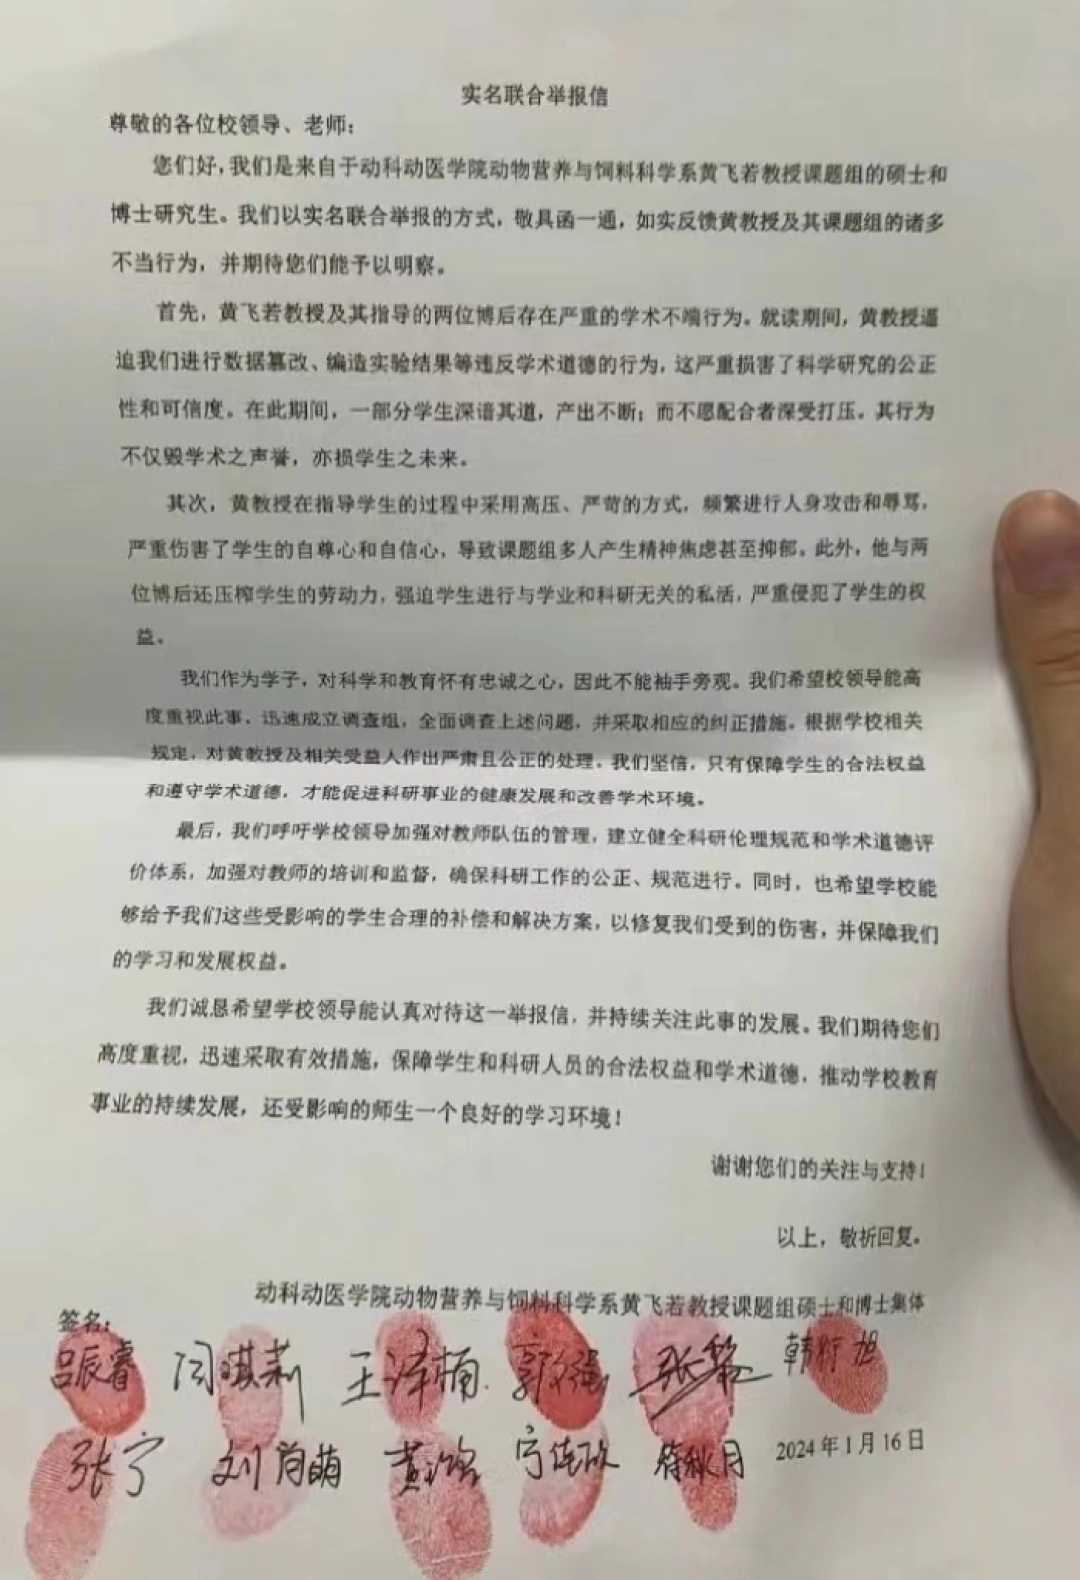 实名联合举报信
尊敬的各位校领导、老师：
您们好，我们是来自于动科动医学院动物营养与饲料科学系黄飞若教授课题组的硕士和
博士研究生。我们以实名联合举报的方式，敬具函一通，如实反馈黄教授及其课题组的诸多
不当行为，并期待您们能予以明察。
首先，黄飞若教授及其指导的两位博后存在严重的学术不端行为。就读期间，黄教授逼
迫我们进行数据篡改、编造实验结果等违反学术道德的行为，这严重损害了科学研究的公正
性和可信度。在此期间，一部分学生深谙其道，产出不断；而不愿配合者深受打压。其行为
不仅毁学术之声誉，亦损学生之未来。
其次，黄教授在指导学生的过程中采用高压、严苛的方式，频繁进行人身攻击和辱骂，
严重伤害了学生的自尊心和自信心，导致课题组多人产生精神焦虑甚至抑郁。此外，他与两
位博后还压榨学生的劳动力，强迫学生进行与学业和科研无关的私活，严重侵犯了学生的权
益。
我们作为学子，对科学和教育怀有忠诚之心，因此不能袖手旁观。我们希望校领导能高
度重视此事，迅速成立调查组，全面调查上述问题，并采取相应的纠正措施。根据学校相关
规定，对黄教授及相关受益人作出严肃且公正的处理。我们坚信，只有保障学生的合法权益
和遵守学术道德，才能促进科研事业的健康发展和改善学术环境。
最后，我们呼吁学校领导加强对教师队伍的管理，建立健全科研伦理规范和学术道德评
价体系，加强对教师的培训和监督，确保科研工作的公正、规范进行。同时，也希望学校能
够给予我们这些受影响的学生合理的补偿和解决方案，以修复我们受到的伤害，并保障我们
的学习和发展权益。
我们诚恳希望学校领导能认真对待这一举报信，并持续关注此事的发展。我们期待您们
高度重视，迅速采取有效措施，保障学生和科研人员的合法权益和学术道德，推动学校教育
事业的持续发展，还受影响的师生一个良好的学习环境！
谢谢您们的关注与支持！
以上，敬祈回复。
动科动医学院动物营养与饲料科学系黄飞若教授课题组硕士和博士集体
签名：
吕辰睿 闫淇莉 王泽楠 郭强 张黎 韩衍旭
张宁 刘前萌 黄铭 符秋月
2024年1月16日